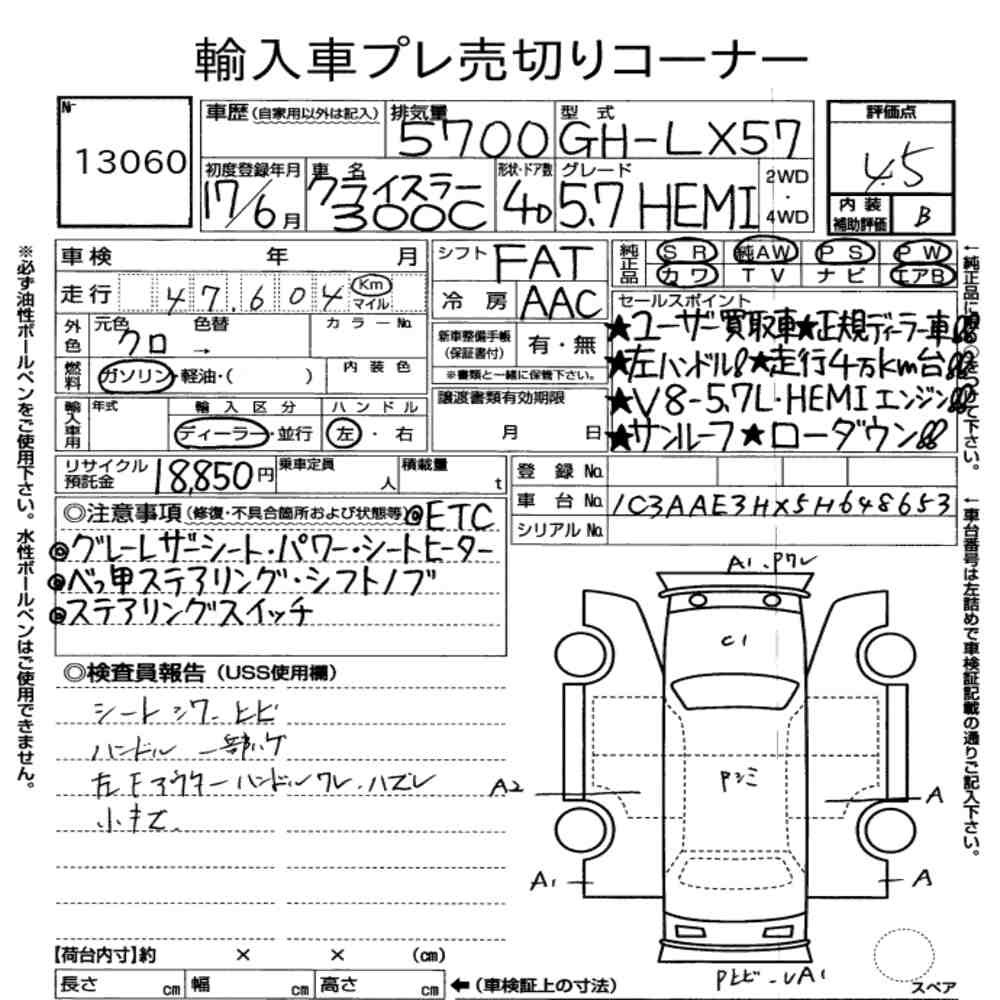 輸入車プレ売切りコーナー
№
13060
車歴(自家用以外は記入)
排気量
5700
型式
GH-LX57
評価点
4.5
初度登録年月
17/6月
車名
クライスラー
300C
形状・ドア数
4D
グレード
5.7 HEMI
2WD
・
4WD
内装
補助評価
B
車検 年 月
シフト
FAT
純正品
SR 純AW PS PW
カワ TV ナビ エアB
走行 47.604 Km
マイル
冷房
AAC
セールスポイント
★ユーザー買取車★正規ディーラー車!!
★左ハンドル!!★走行4万km台!!
★V8-5.7L・HEMIエンジン!!
★サンルーフ★ローダウン!!
外色
元色 色替
クロ →
カラーNo.
新車整備手帳
(保証書付)
有・無
※書類と一緒に保管下さい。
燃料
ガソリン・軽油・( )
内装色
輸入車用
年式
輸入区分
ハンドル
ディーラー・並行
左・右
譲渡書類有効期限
月 日
リサイクル
預託金
18,850円
乗車定員
人
積載量
t
登録No.
車台No.
1C3AAE3HX5H648653
シリアルNo.
◎注意事項(修復・不具合箇所および状態等)◎ETC
◎グレーレザーシート・パワー・シートヒーター
◎べっ甲ステアリング・シフトノブ
◎ステアリングスイッチ
◎検査員報告(USS使用欄)
シートシワ、ヒビ
ハンドル 一部ハゲ
左Fアウターハンドルワレ、ハズレ
小キズ
A1、Pワレ
C1
Pシミ
A2
A
A1
A
Pヒビ
UA1
【荷台内寸】約 × × (cm)
長さ cm
幅 cm
高さ cm
←(車検証上の寸法)
スペア
※必ず油性ボールペンをご使用下さい。水性ボールペンはご使用できません。
←純正品に限り○をつけて下さい。
←車台番号は左詰めで車検証記載の通りご記入下さい。